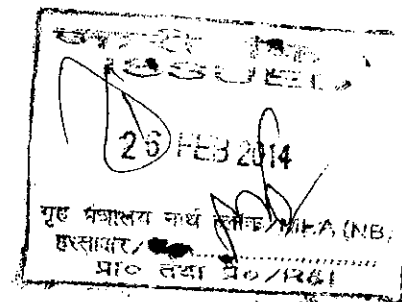 ISSUED
26 FEB 2014
गृह मंत्रालय नार्थ ब्लाक/MHA (NB)
हस्ताक्षर/
प्रा० तथा प्रे०/R&I